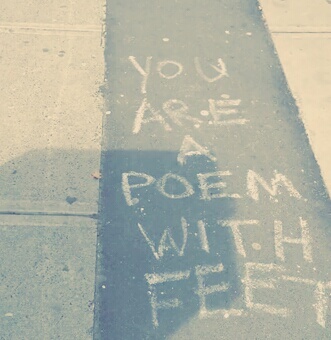 YOU
ARE
A
POEM
WITH
FEET